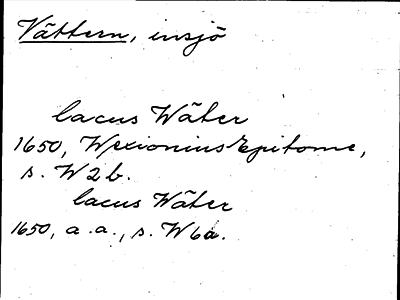 Vättern, insjö
lacus Wäter
1650, Wexionius Epitome,
s. W2b.
lacus Wäter
1650, a.a., s. W6a.